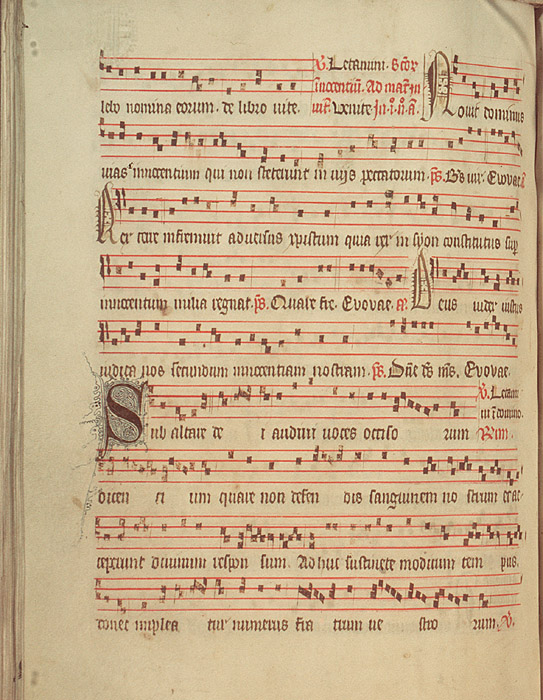 V. Letamini. Scōr
leto nomina eorum. de libro vite. innocentium. Ad matr̄ in
vit. Venite In .i. n. a. Novit dominus
vias innocentium qui non steterunt in viis peccatorum. ps. Bs vir. Evovae. a
Rex terre infremunt adversus xpistum quia rex in syon constitutus sup
innocentium milia regnat. ps. Quare fre. Evovae. a. Deus iudex iustus
iudica nos secundum innocentiam nostram. ps. Dn̄e ds ms. Evovae.
V. Letam
in domino.
Sub altare de i audivi voces occiso rum R̄m.
dicen ci um quare non defen dis sanguinem no strum et ac
ceperunt divinum respon sum. Ad huc sustinete modicum tem pus.
donec implea tur numerus fra trum ve stro rum. V.